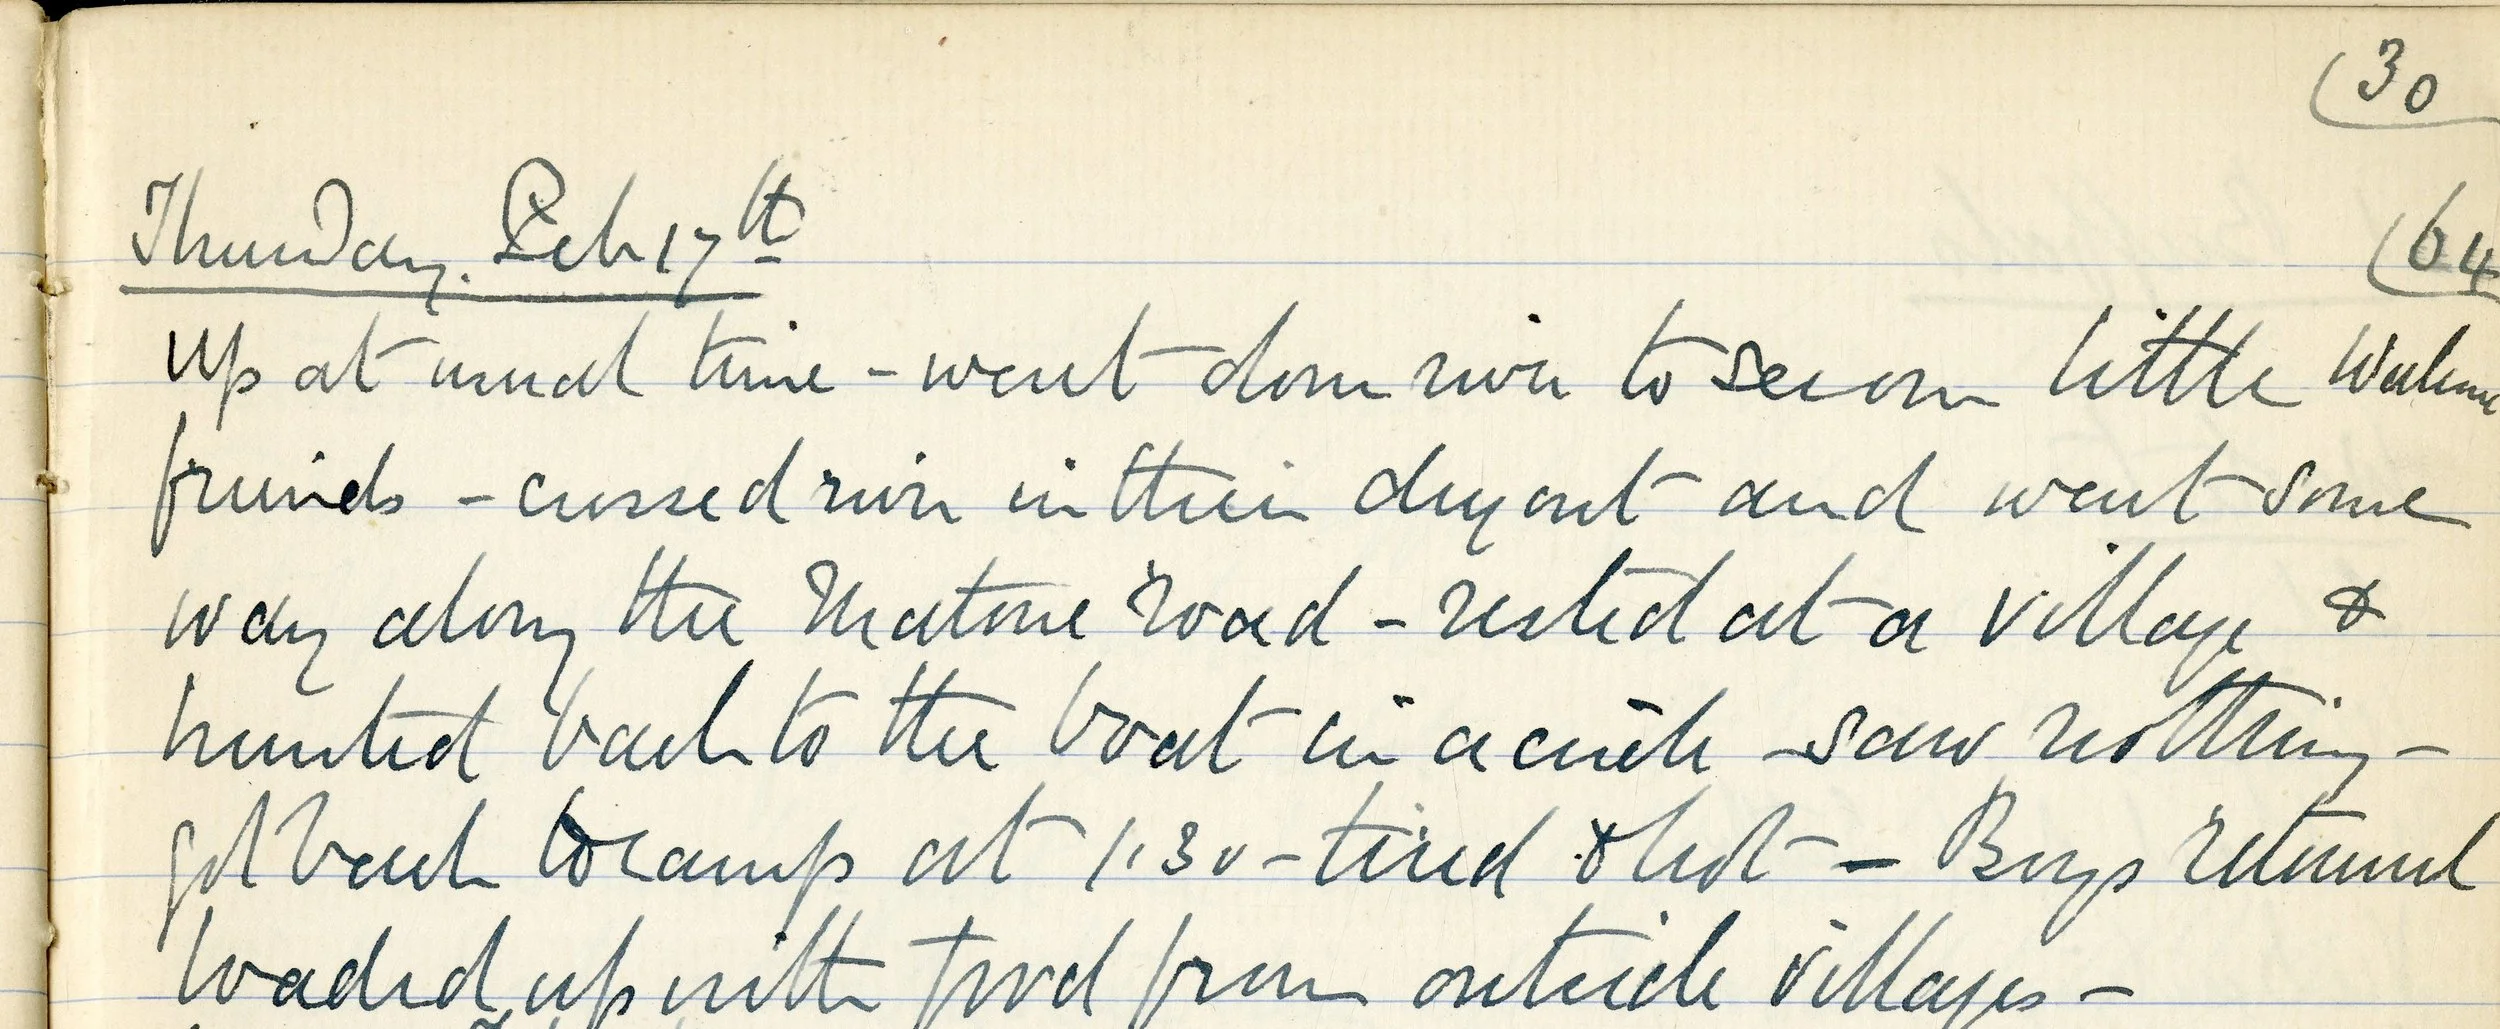 (30
Thursday. Feb 17th
(64
Up at usual time - went down river to see our little
friends - crossed river in their dugout and went some
way along the road - rested at a village &
hunted back to the boat in a circle - saw nothing -
got back to camp at 1.30 - tired & hot - Boys returned
loaded up with food from outside villages -